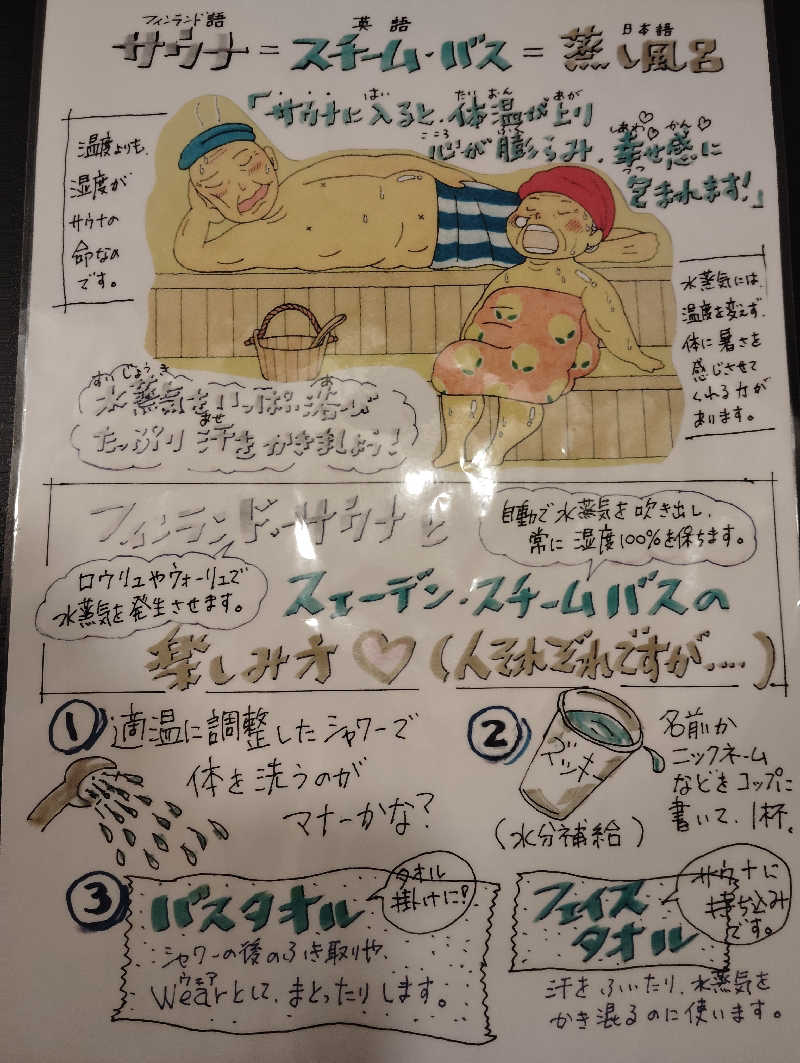 フィンランド語 英語 日本語
サウナ = スチーム・バス = 蒸し風呂
「サウナに入ると、体温が上り
はい たいおん あが
心が膨らみ、幸せ感に
こころ ふく しあわ かん
包まれます!」
つつ
温度よりも、
湿度が
サウナの
命なの
です。
水蒸気には、
温度を変えず、
体に暑さを
感じさせて
くれる力が
あります。
すいじょうき あ
水蒸気をいっぱい浴び
あせ
たっぷり汗をかきましょう!
フィンランド・サウナと
自動で水蒸気を吹き出し、
常に湿度100%を保ちます。
ロウリュやヴォーリュで
水蒸気を発生させます。
スェーデン・スチームバスの
楽しみ方♡(人それぞれですが....)
① 適温に調整したシャワーで
体を洗うのが
マナーかな?
②
名前か
ニックネーム
などをコップに
書いて、1杯。
(水分補給)
③ バスタオル
タオル
掛けに!
シャワーの後のふき取りや、
ウェア
Wearとして、まとったりします。
フェイス
タオル
サウナに
持ち込み
です。
汗をふいたり、水蒸気を
かき混るのに使います。